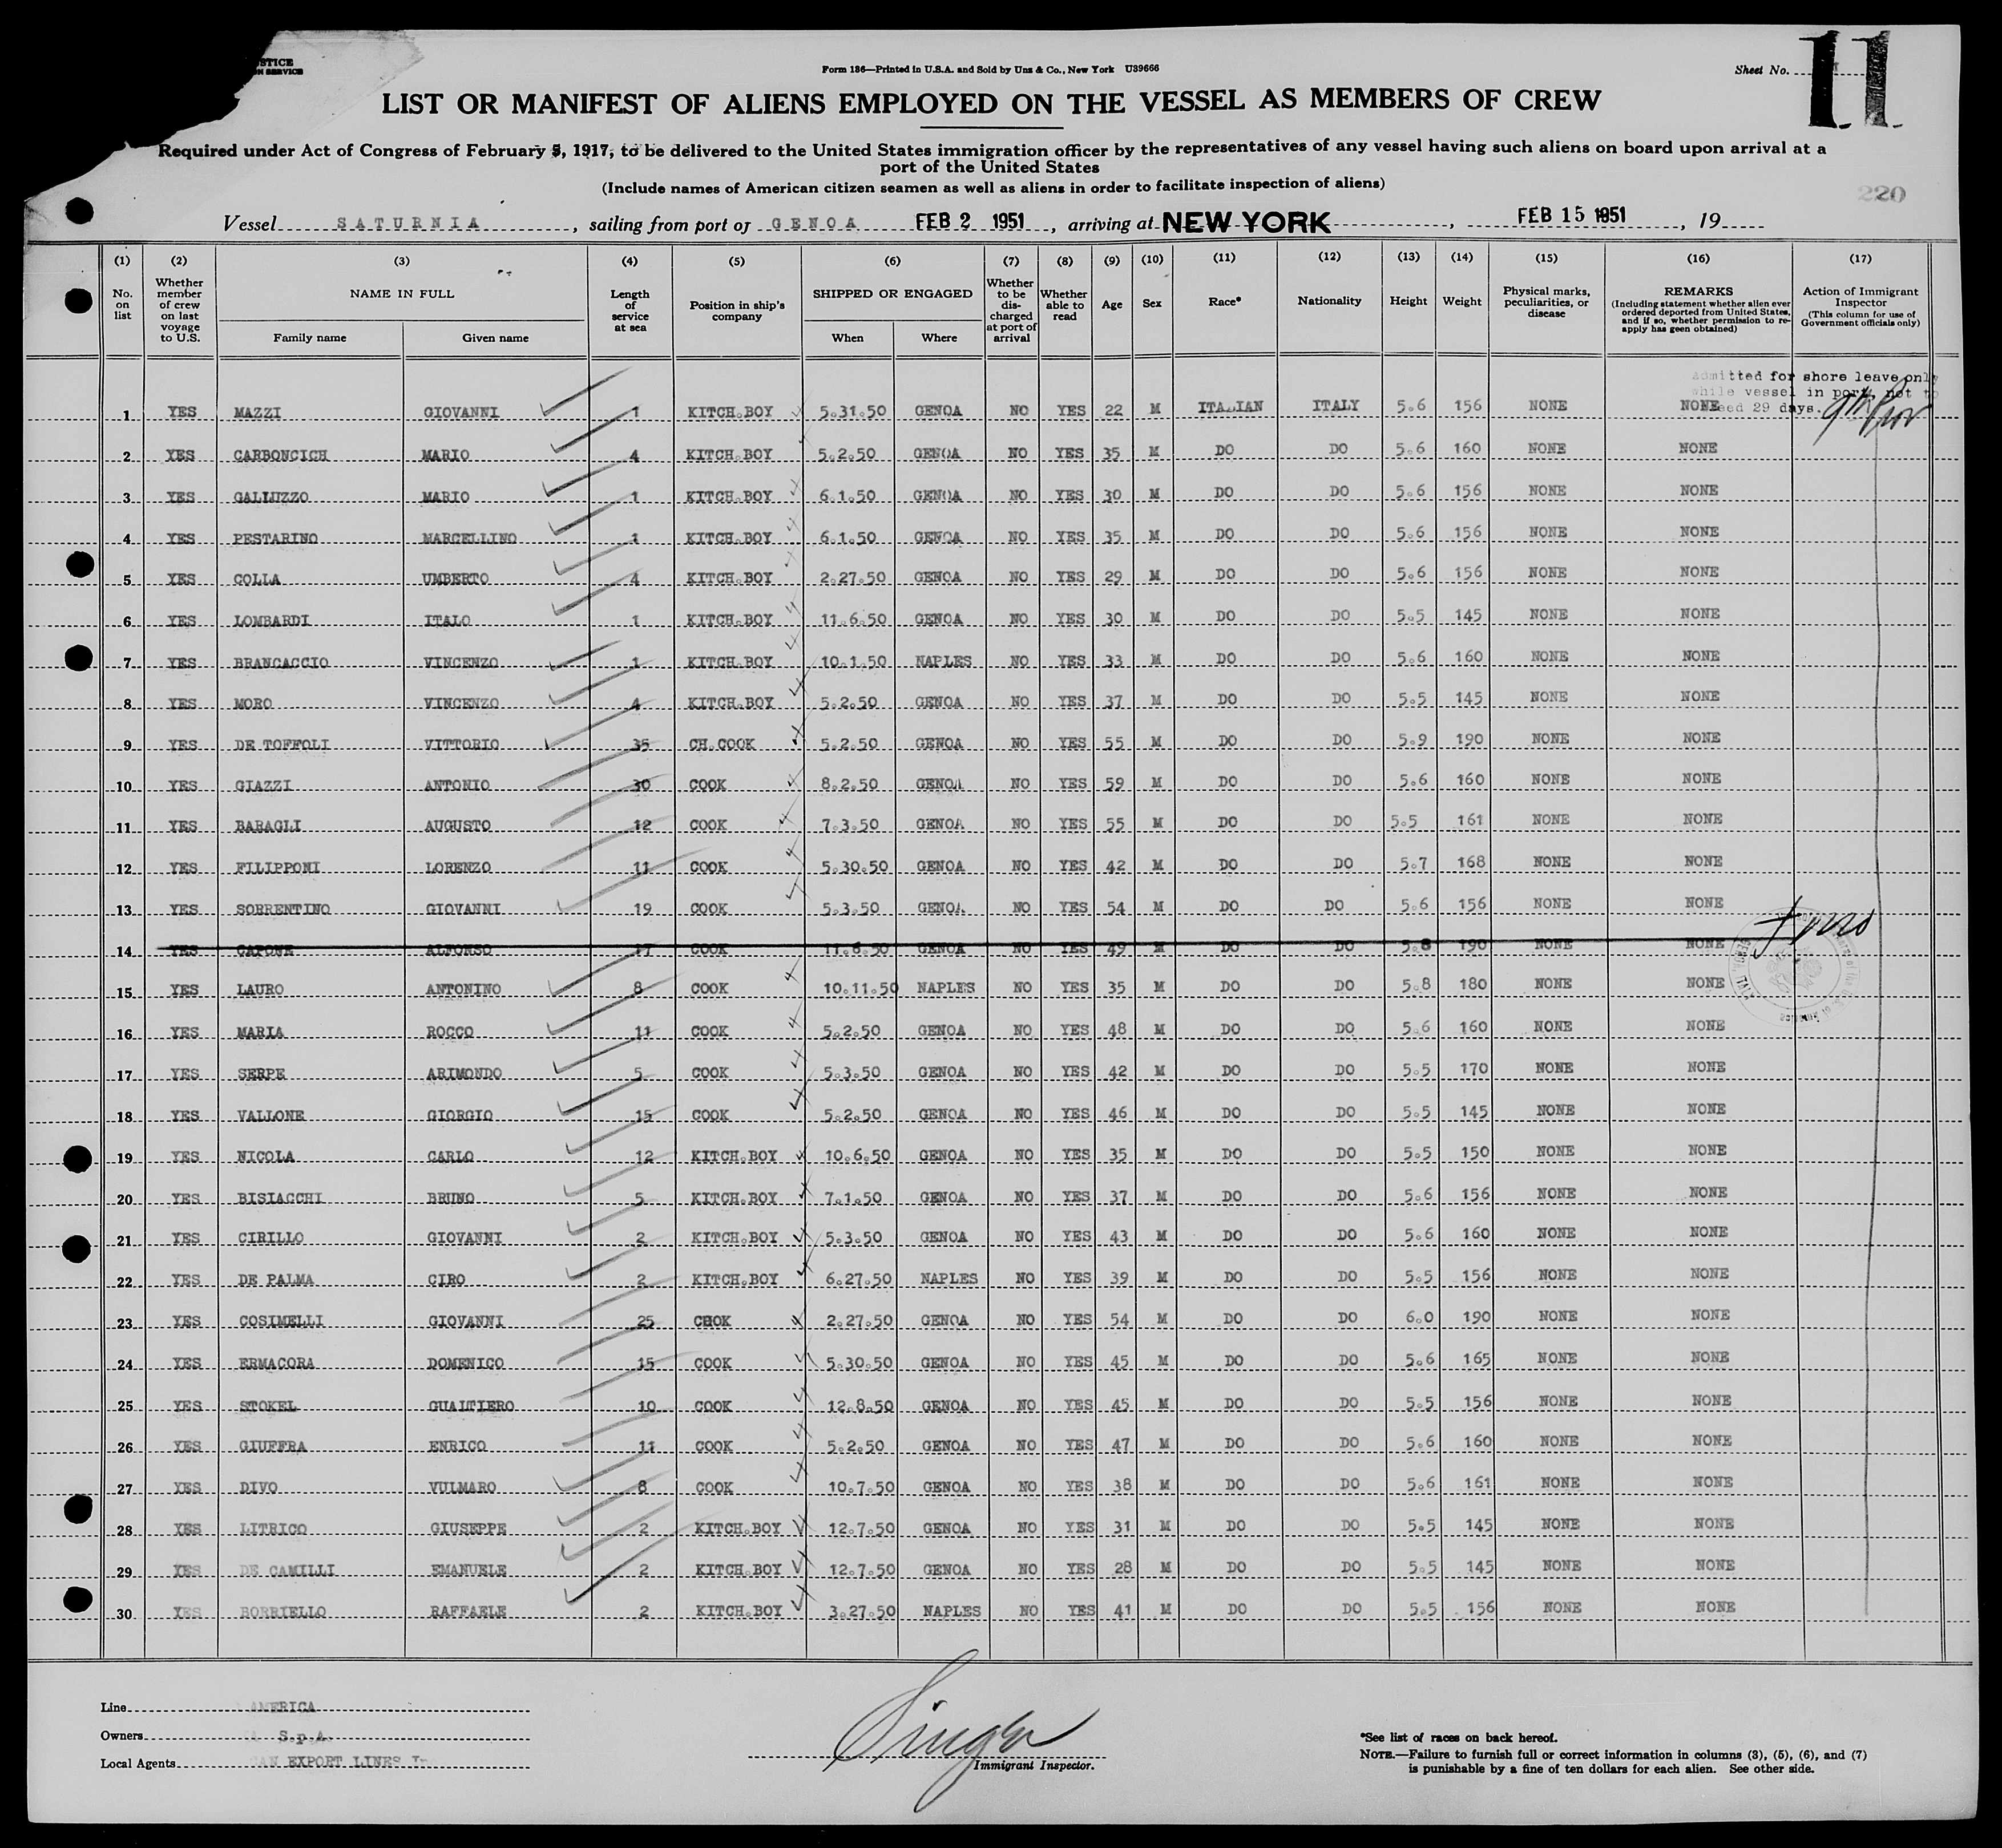 STICE
N SERVICE
Form 186—Printed in U.S.A. and Sold by Unz & Co., New York U39666
Sheet No.
11
LIST OR MANIFEST OF ALIENS EMPLOYED ON THE VESSEL AS MEMBERS OF CREW
Required under Act of Congress of February 5, 1917, to be delivered to the United States immigration officer by the representatives of any vessel having such aliens on board upon arrival at a
port of the United States
(Include names of American citizen seamen as well as aliens in order to facilitate inspection of aliens)
220
Vessel SATURNIA, sailing from port of GENOA FEB 2 1951, arriving at NEW YORK, FEB 15 1951, 19
(1) (2) (3) (4) (5) (6) (7) (8) (9) (10) (11) (12) (13) (14) (15) (16) (17)
No. on list
Whether member of crew on last voyage to U.S.
NAME IN FULL
Family name
Given name
Length of service at sea
Position in ship's company
SHIPPED OR ENGAGED
When
Where
Whether to be discharged at port of arrival
Whether able to read
Age
Sex
Race*
Nationality
Height
Weight
Physical marks, peculiarities, or disease
REMARKS
(Including statement whether alien ever ordered deported from United States, and if so, whether permission to re-apply has geen obtained)
Action of Immigrant Inspector
(This column for use of Government officials only)
admitted for shore leave only
while vessel in port, not to
exceed 29 days.
1 YES MAZZI GIOVANNI 1 KITCH.BOY 5.31.50 GENOA NO YES 22 M ITALIAN ITALY 5.6 156 NONE NONE
2 YES CARBONCICH MARIO 4 KITCH.BOY 5.2.50 GENOA NO YES 35 M DO DO 5.6 160 NONE NONE
3 YES GALLUZZO MARIO 1 KITCH.BOY 6.1.50 GENOA NO YES 30 M DO DO 5.6 156 NONE NONE
4 YES PESTARINO MARCELLINO 1 KITCH.BOY 6.1.50 GENOA NO YES 35 M DO DO 5.6 156 NONE NONE
5 YES COLLA UMBERTO 4 KITCH.BOY 2.27.50 GENOA NO YES 29 M DO DO 5.6 156 NONE NONE
6 YES LOMBARDI ITALO 1 KITCH.BOY 11.6.50 GENOA NO YES 30 M DO DO 5.5 145 NONE NONE
7 YES BRANCACCIO VINCENZO 1 KITCH.BOY 10.1.50 NAPLES NO YES 33 M DO DO 5.6 160 NONE NONE
8 YES MORO VINCENZO 4 KITCH.BOY 5.2.50 GENOA NO YES 37 M DO DO 5.5 145 NONE NONE
9 YES DE TOFFOLI VITTORIO 35 CH.COOK 5.2.50 GENOA NO YES 55 M DO DO 5.9 190 NONE NONE
10 YES GIAZZI ANTONIO 30 COOK 8.2.50 GENOA NO YES 59 M DO DO 5.6 160 NONE NONE
11 YES BARAGLI AUGUSTO 12 COOK 7.3.50 GENOA NO YES 55 M DO DO 5.5 161 NONE NONE
12 YES FILIPPONI LORENZO 11 COOK 5.30.50 GENOA NO YES 42 M DO DO 5.7 168 NONE NONE
13 YES SORRENTINO GIOVANNI 19 COOK 5.3.50 GENOA NO YES 54 M DO DO 5.6 156 NONE NONE
14 YES CAPONE ALFONSO 17 COOK 11.6.50 GENOA NO YES 49 M DO DO 5.8 190 NONE NONE
15 YES LAURO ANTONINO 8 COOK 10.11.50 NAPLES NO YES 35 M DO DO 5.8 180 NONE NONE
16 YES MARIA ROCCO 11 COOK 5.2.50 GENOA NO YES 48 M DO DO 5.6 160 NONE NONE
17 YES SERPE ARIMONDO 5 COOK 5.3.50 GENOA NO YES 42 M DO DO 5.5 170 NONE NONE
18 YES VALLONE GIORGIO 15 COOK 5.2.50 GENOA NO YES 46 M DO DO 5.5 145 NONE NONE
19 YES NICOLA CARLO 12 KITCH.BOY 10.6.50 GENOA NO YES 35 M DO DO 5.5 150 NONE NONE
20 YES BISIACCHI BRUNO 5 KITCH.BOY 7.1.50 GENOA NO YES 37 M DO DO 5.6 156 NONE NONE
21 YES CIRILLO GIOVANNI 2 KITCH.BOY 5.3.50 GENOA NO YES 43 M DO DO 5.6 160 NONE NONE
22 YES DE PALMA CIRO 2 KITCH.BOY 6.27.50 NAPLES NO YES 39 M DO DO 5.5 156 NONE NONE
23 YES COSIMELLI GIOVANNI 25 CHOK 2.27.50 GENOA NO YES 54 M DO DO 6.0 190 NONE NONE
24 YES ERMACORA DOMENICO 15 COOK 5.30.50 GENOA NO YES 45 M DO DO 5.6 165 NONE NONE
25 YES STOKEL GUALTIERO 10 COOK 12.8.50 GENOA NO YES 45 M DO DO 5.5 156 NONE NONE
26 YES GIUFFRA ENRICO 11 COOK 5.2.50 GENOA NO YES 47 M DO DO 5.6 160 NONE NONE
27 YES DIVO VULMARO 8 COOK 10.7.50 GENOA NO YES 38 M DO DO 5.6 161 NONE NONE
28 YES LITRICO GIUSEPPE 2 KITCH.BOY 12.7.50 GENOA NO YES 31 M DO DO 5.5 145 NONE NONE
29 YES DE CAMILLI EMANUELE 2 KITCH.BOY 12.7.50 GENOA NO YES 28 M DO DO 5.5 145 NONE NONE
30 YES BORRIELLO RAFFAELE 2 KITCH.BOY 3.27.50 NAPLES NO YES 41 M DO DO 5.5 156 NONE NONE
Line AMERICA
Owners S.p.A.
Local Agents CAN EXPORT LINES In
Singer
Immigrant Inspector.
*See list of races on back hereof.
NOTE.—Failure to furnish full or correct information in columns (3), (5), (6), and (7)
is punishable by a fine of ten dollars for each alien. See other side.